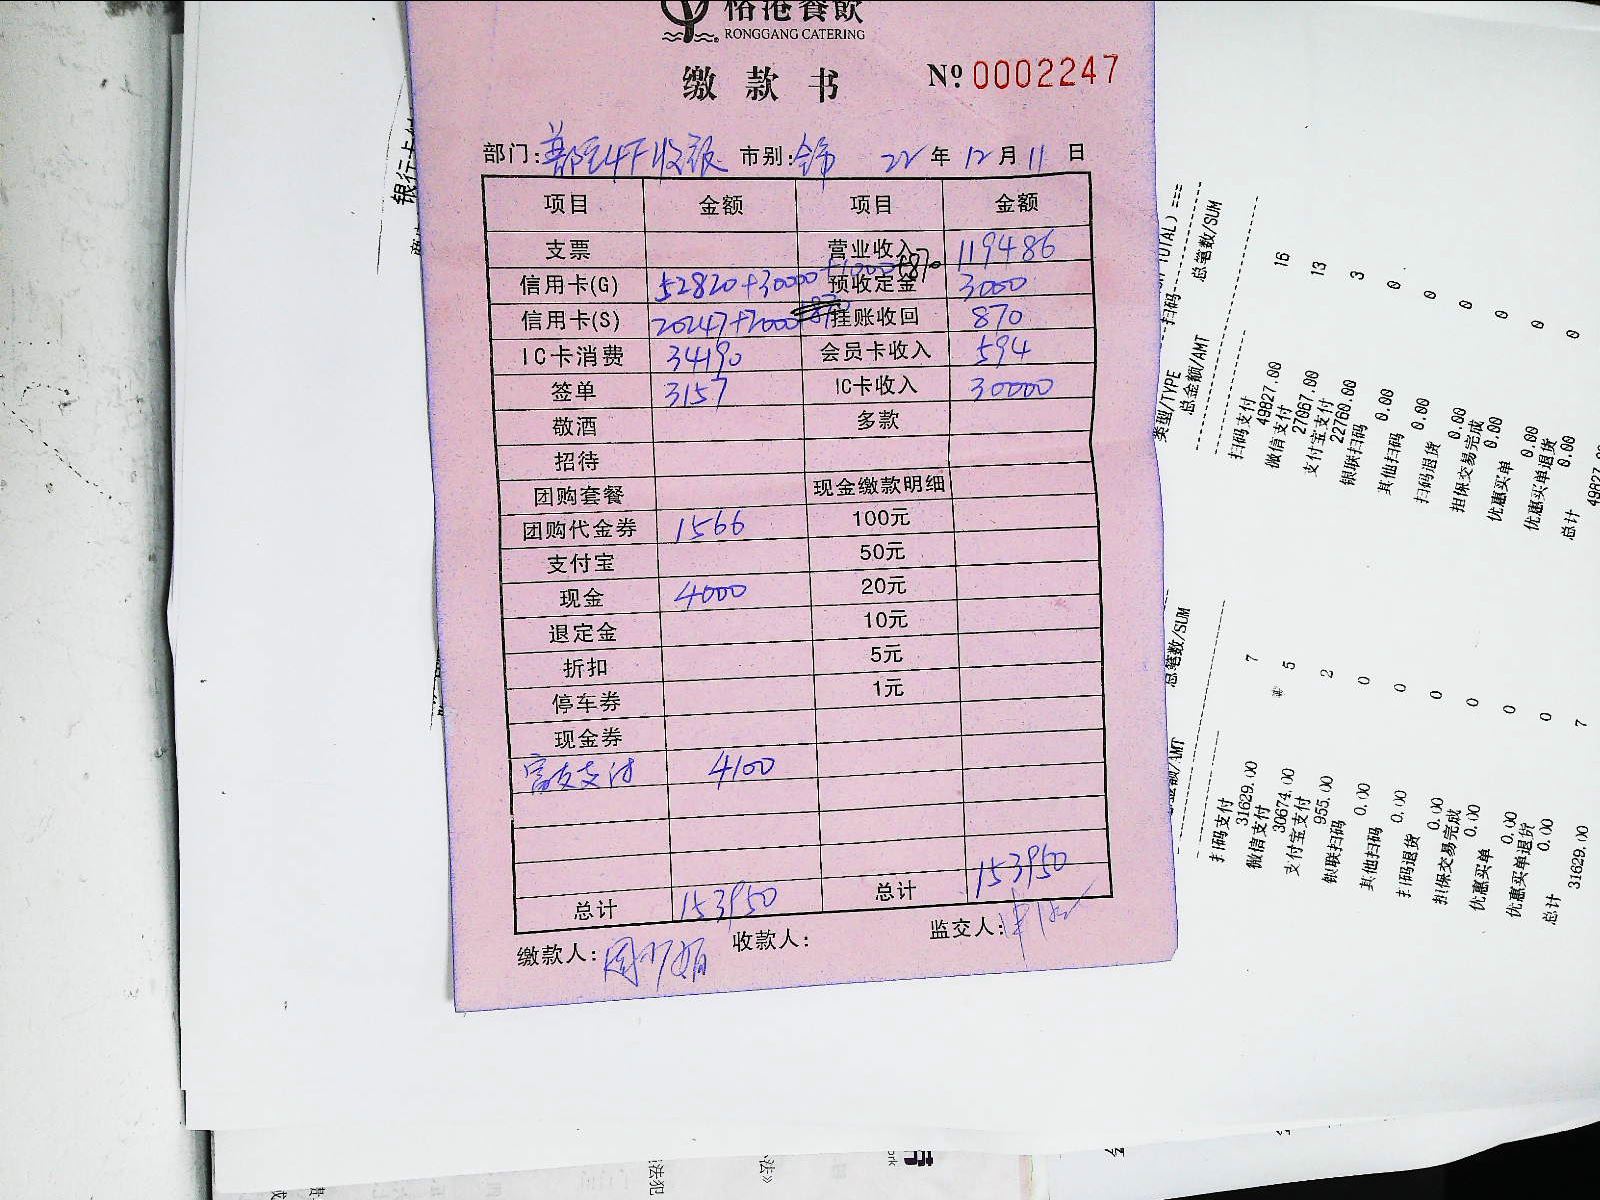 榕港餐飲
RONGGANG CATERING
缴款书
Nº 0002247
部门: 4F收银 市别: 全 22年12月11日
项目 金额 项目 金额
支票 营业收入 119486
信用卡(G) 52820+30000+1000+870 预收定金 3000
信用卡(S) 20247+2000 挂账收回 870
IC卡消费 34190 会员卡收入 594
签单 3157 IC卡收入 30000
敬酒 多款
招待
团购套餐 现金缴款明细
团购代金券 1566 100元
支付宝 50元
现金 4000 20元
退定金 10元
折扣 5元
停车券 1元
现金券
富友支付 4100
总计 153950 总计 153950
缴款人: 周少娟 收款人: 监交人:
银行卡
TOTAL) ===
扫码
类型/TYPE 总笔数/SUM
总金额/AMT
扫码支付 16
49827.00
微信支付 13
27067.00
支付宝支付 3
22760.00
银联扫码 0
0.00
其他扫码 0
0.00
扫码退货 0
0.00
担保交易完成 0
0.00
优惠买单 0
0.00
优惠买单退货 0
0.00
总计
49827.00
总笔数/SUM
总金额/AMT
扫码支付 7
31629.00
微信支付 5
30674.00
支付宝支付 2
955.00
银联扫码 0
0.00
其他扫码 0
0.00
扫码退货 0
0.00
担保交易完成 0
0.00
优惠买单 0
0.00
优惠买单退货 0
0.00
总计 7
31629.00
法犯
法》